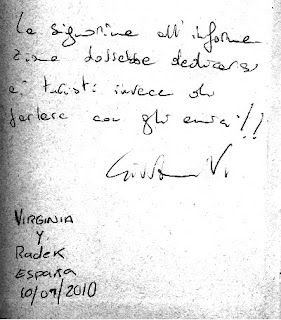 La signorina all'informa
zione dovrebbe dedicarsi
ai turisti invece di
parlare con gli amici!!
VIRGINIA
Y
RadeK
ESPAÑA
10/07/2010